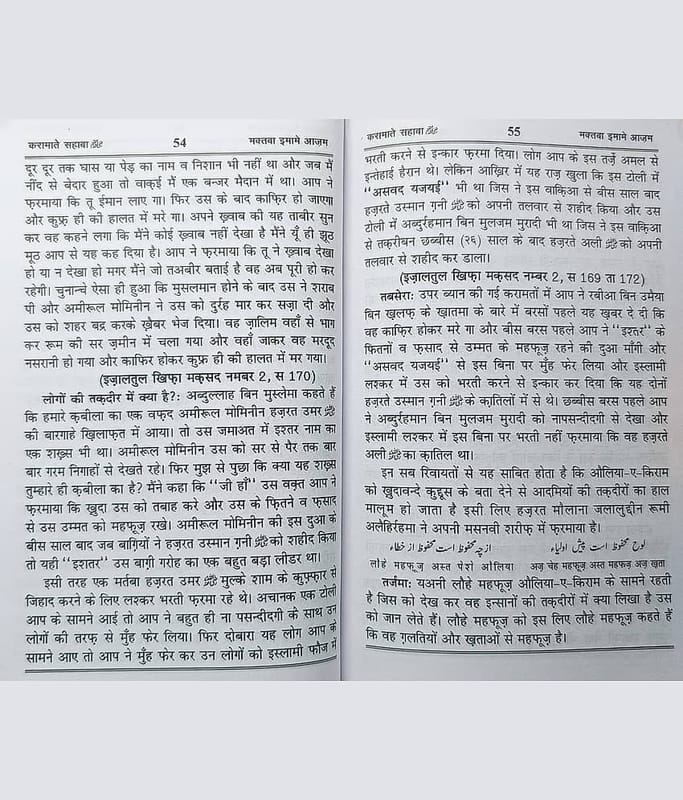 करामाते सहाबा 54 मक्तबा इमामे आज़म
दूर दूर तक घास या पेड़ का नाम व निशान भी नहीं था और जब में
नींद से बेदार हुआ तो वाक़ई मैं एक बन्जर मैदान में था। आप ने
फ़रमाया कि तू ईमान लाए गा। फिर उस के बाद काफ़िर हो जाएगा
और कुफ़्र ही की हालत में मरे गा। अपने ख़्वाब की यह ताबीर सुन
कर वह कहने लगा कि मैंने कोई ख़्वाब नहीं देखा है मैंने यूँ ही झूठ
मूठ आप से यह कह दिया है। आप ने फ़रमाया कि तू ने ख़्वाब देखा
हो या न देखा हो मगर मैंने जो तअबीर बताई है वह अब पूरी हो कर
रहेगी। चुनान्चे ऐसा ही हुआ कि मुसलमान होने के बाद उस ने शराब
पी और अमीरूल मोमिनीन ने उस को दुर्रह मार कर सज़ा दी और
उस को शहर बद्र करके ख़ैबर भेज दिया। वह ज़ालिम वहाँ से भाग
कर रूम की सर ज़मीन में चला गया और वहाँ जाकर वह मरदूद
नसरानी हो गया और काफिर होकर कुफ़्र ही की हालत में मर गया।
(इज़ालतुल ख़िफ़ा मक़सद नमबर 2, स 170)
लोगों की तक़दीर में क्या है?: अब्दुल्लाह बिन मुस्लेमा कहते हैं
कि हमारे क़बीला का एक वफ़द अमीरूल मोमिनीन हज़रत उमर ﷺ
की बारगाहे ख़िलाफ़त में आया। तो उस जमाअत में इशतर नाम का
एक शख़्स भी था। अमीरूल मोमिनीन उस को सर से पैर तक बार
बार गरम निगाहों से देखते रहे। फिर मुझ से पुछा कि क्या यह शख़्स
तुम्हारे ही क़बीला का है? मैंने कहा कि "जी हाँ" उस वक़्त आप ने
फ़रमाया कि ख़ुदा उस को तबाह करे और उस के फ़ितने व फ़साद
से उस उम्मत को महफूज़ रखे। अमीरूल मोमिनीन की इस दुआ के
बीस साल बाद जब बाग़ियों ने हज़रत उस्मान ग़नी को शहीद किया
तो यही "इशतर" उस बाग़ी गरोह का एक बहुत बड़ा लीडर था।
इसी तरह एक मर्तबा हज़रत उमर मुल्के शाम के कुफ़्फ़ार से
जिहाद करने के लिए लश्कर भरती फ़रमा रहे थे। अचानक एक टोली
आप के सामने आई तो आप ने बहुत ही ना पसन्दीदगी के साथ उन
लोगों की तरफ़ से मुँह फेर लिया। फिर दोबारा यह लोग आप के
सामने आए तो आप ने मुँह फेर कर उन लोगों को इस्लामी फौज में
करामाते सहाबा 55 मक्तबा इमामे आज़म
भरती करने से इन्कार फ़रमा दिया। लोग आप के इस तर्ज़े अमल से
इन्तेहाई हैरान थे। लेकिन आख़िर में यह राज़ खुला कि इस टोली में
"असवद यजयई" भी था जिस ने इस वाक़िआ से बीस साल बाद
हज़रते उस्मान ग़नी को अपनी तलवार से शहीद किया और उस
टोली में अब्दुर्रहमान बिन मुलजम मुरादी भी था जिस ने इस वाक़िआ
से तक़रीबन छब्बीस (२६) साल के बाद हज़रते अली को अपनी
तलवार से शहीद कर डाला।
(इज़ालतुल ख़िफ़ा मक़सद नम्बर 2, स 169 ता 172)
तबसेरा: उपर ब्यान की गई करामतों में आप ने रबीआ बिन उमैया
बिन ख़लफ़ के ख़ातमा के बारे में बरसों पहले यह ख़बर दे दी कि
वह काफ़िर होकर मरे गा और बीस बरस पहले आप ने "इशतर" के
फितनों व फ़साद से उम्मत के महफूज़ रहने की दुआ माँगी और
"असवद यजयई" से इस बिना पर मुँह फेर लिया और इस्लामी
लश्कर में उस को भरती करने से इन्कार कर दिया कि यह दोनों
हज़रते उस्मान ग़नी के क़ातिलों में से थे। छब्बीस बरस पहले आप
ने अब्दुर्रहमान बिन मुलजम मुरादी को नापसन्दीदगी से देखा और
इस्लामी लश्कर में इस बिना पर भरती नहीं फ़रमाया कि वह हज़रते
अली का क़ातिल था।
इन सब रिवायतों से यह साबित होता है कि औलिया-ए-किराम
को ख़ुदावन्दे कुद्दूस के बता देने से आदमियों की तक़दीरों का हाल
मालूम हो जाता है इसी लिए हज़रत मौलाना जलालुद्दीन रूमी
अलैहिर्रहमा ने अपनी मसनवी शरीफ में फ़रमाया है।
لوح محفوظ است پیش اولیاء ازچہ محفوظ است محفوظ از خطاء
लौहे महफूज़ अस्त पेशे औलिया अज़ चेह महफूज़ अस्त महफज़ अज़ ख़ता
तर्जमा: यअनी लौहे महफूज़ औलिया-ए-किराम के सामने रहती
है जिस को देख कर वह इन्सानों की तक़दीरों में क्या लिखा है उस
को जान लेते हैं। लौहे महफूज़ को इस लिए लौहे महफूज़ कहते हैं
कि वह ग़लतियों और ख़ताओं से महफूज़ है।